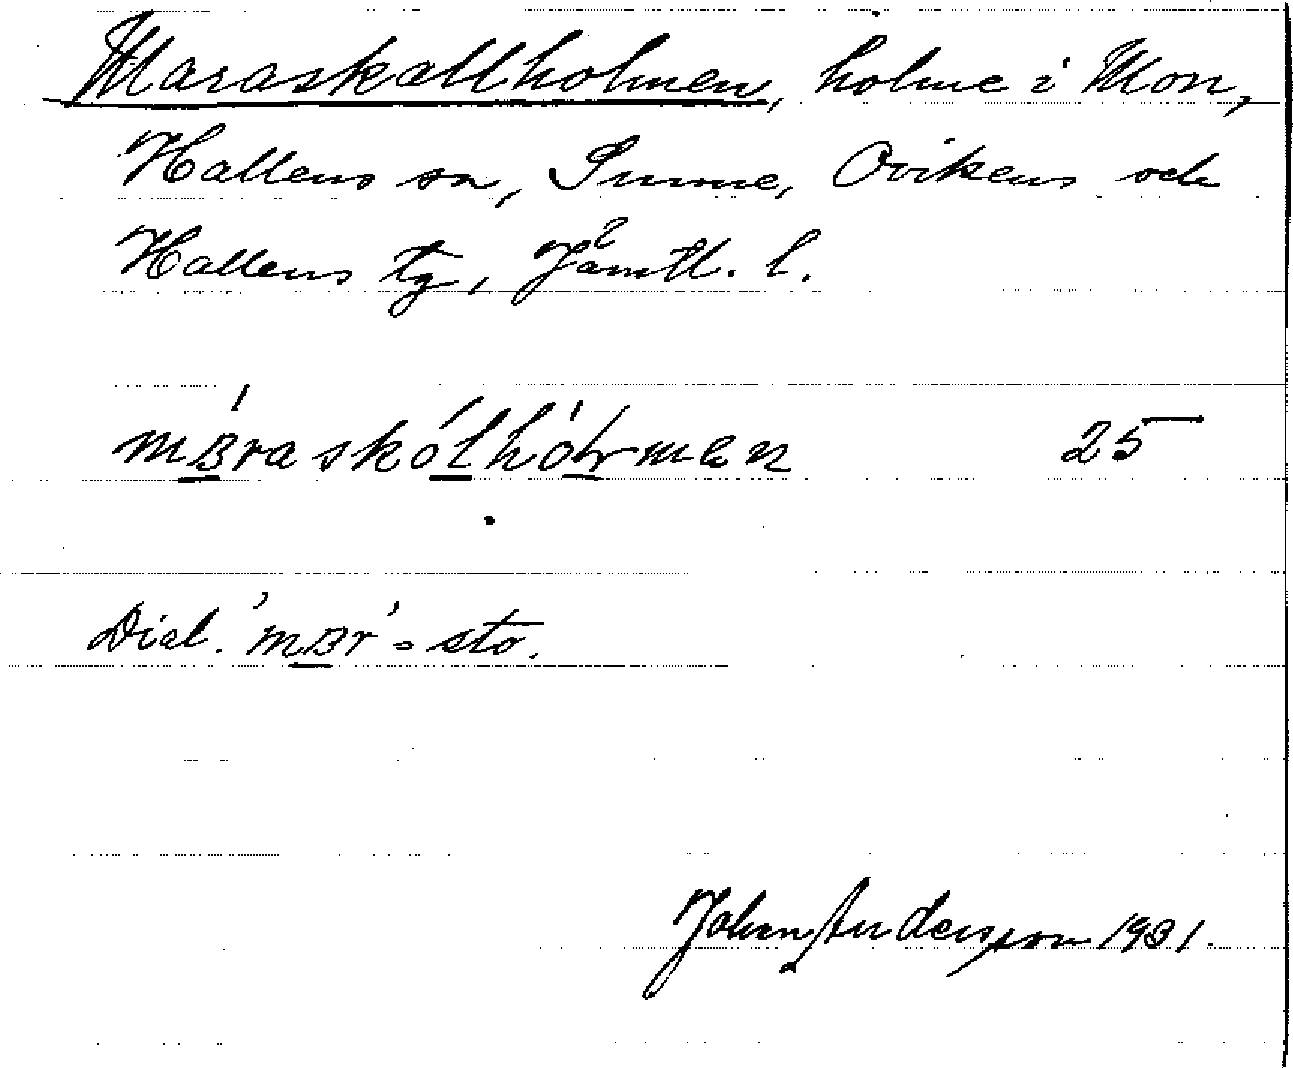 Maraskallholmen, holme i Mon,
Hallens sn, Sunne, Ovikens och
Hallens tg, Jämtl. l.
25
Dial. = sto.
Johan Andersson 1931.